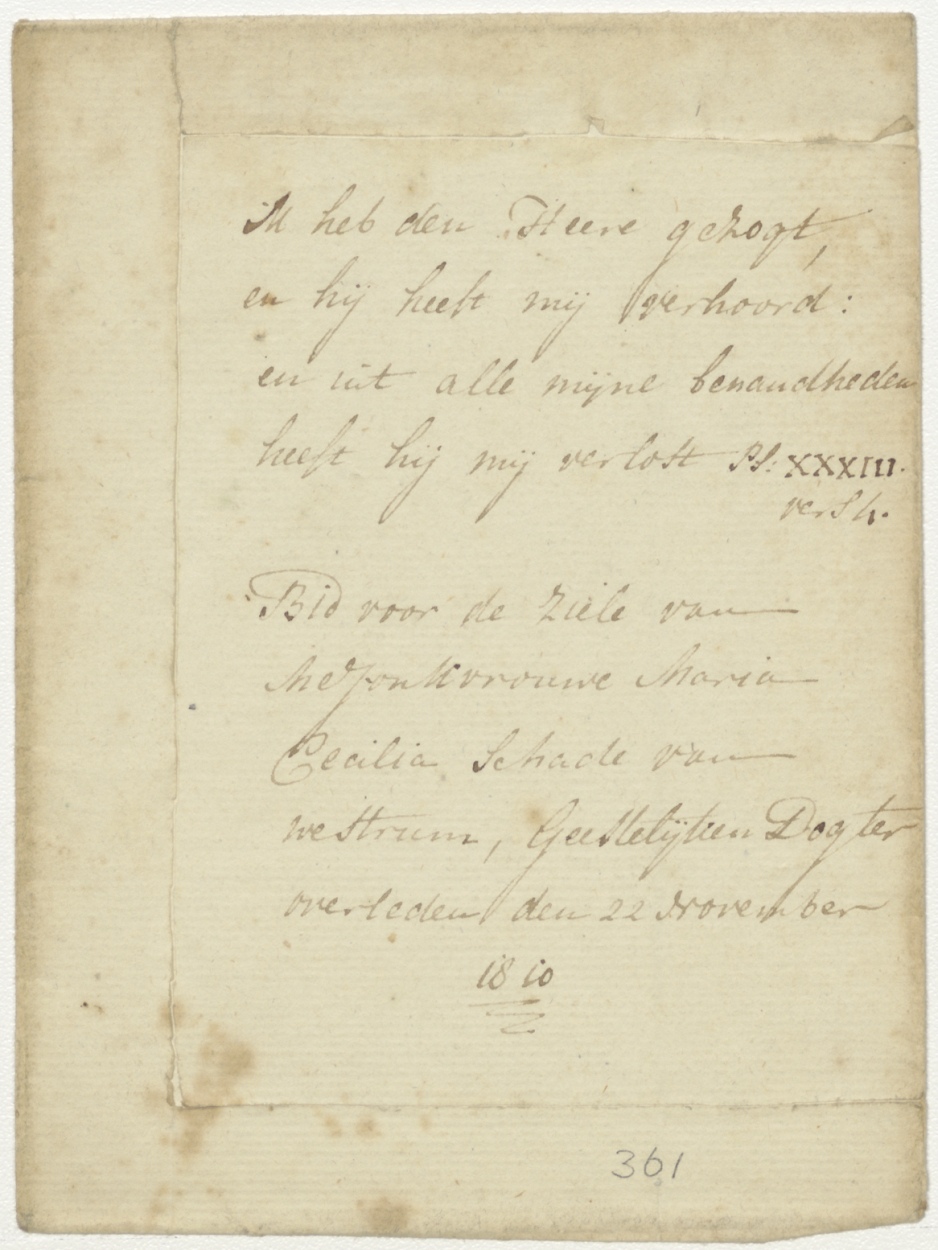 Ik heb den Heere gezogt,
en hij heeft mij verhoord:
en uit alle mijne benaudheden
heeft hij mij verlost Ps: XXXIII.
vers 4.
Bid voor de Ziele van
MeJonkvrouwe Maria
Cecilia Schade van
westrum, Geestelijken Dogter
overleden den 22 November
1810
361